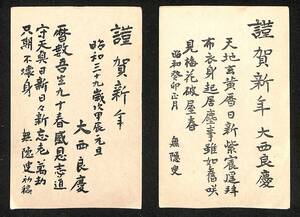 謹賀新年 大西良慶
天地玄黄暦日新紫宸遥拝
布衣身起居塵事雖如旧咲
見梅花破屋春
昭和癸卯正月 無隠叟
謹賀新年
昭和三十九歳次甲辰元旦
大西良慶
暦数吾生九十春感恩志道
守天真日新日々新忘老萬劫
只期不壊身 無隠叟初稿